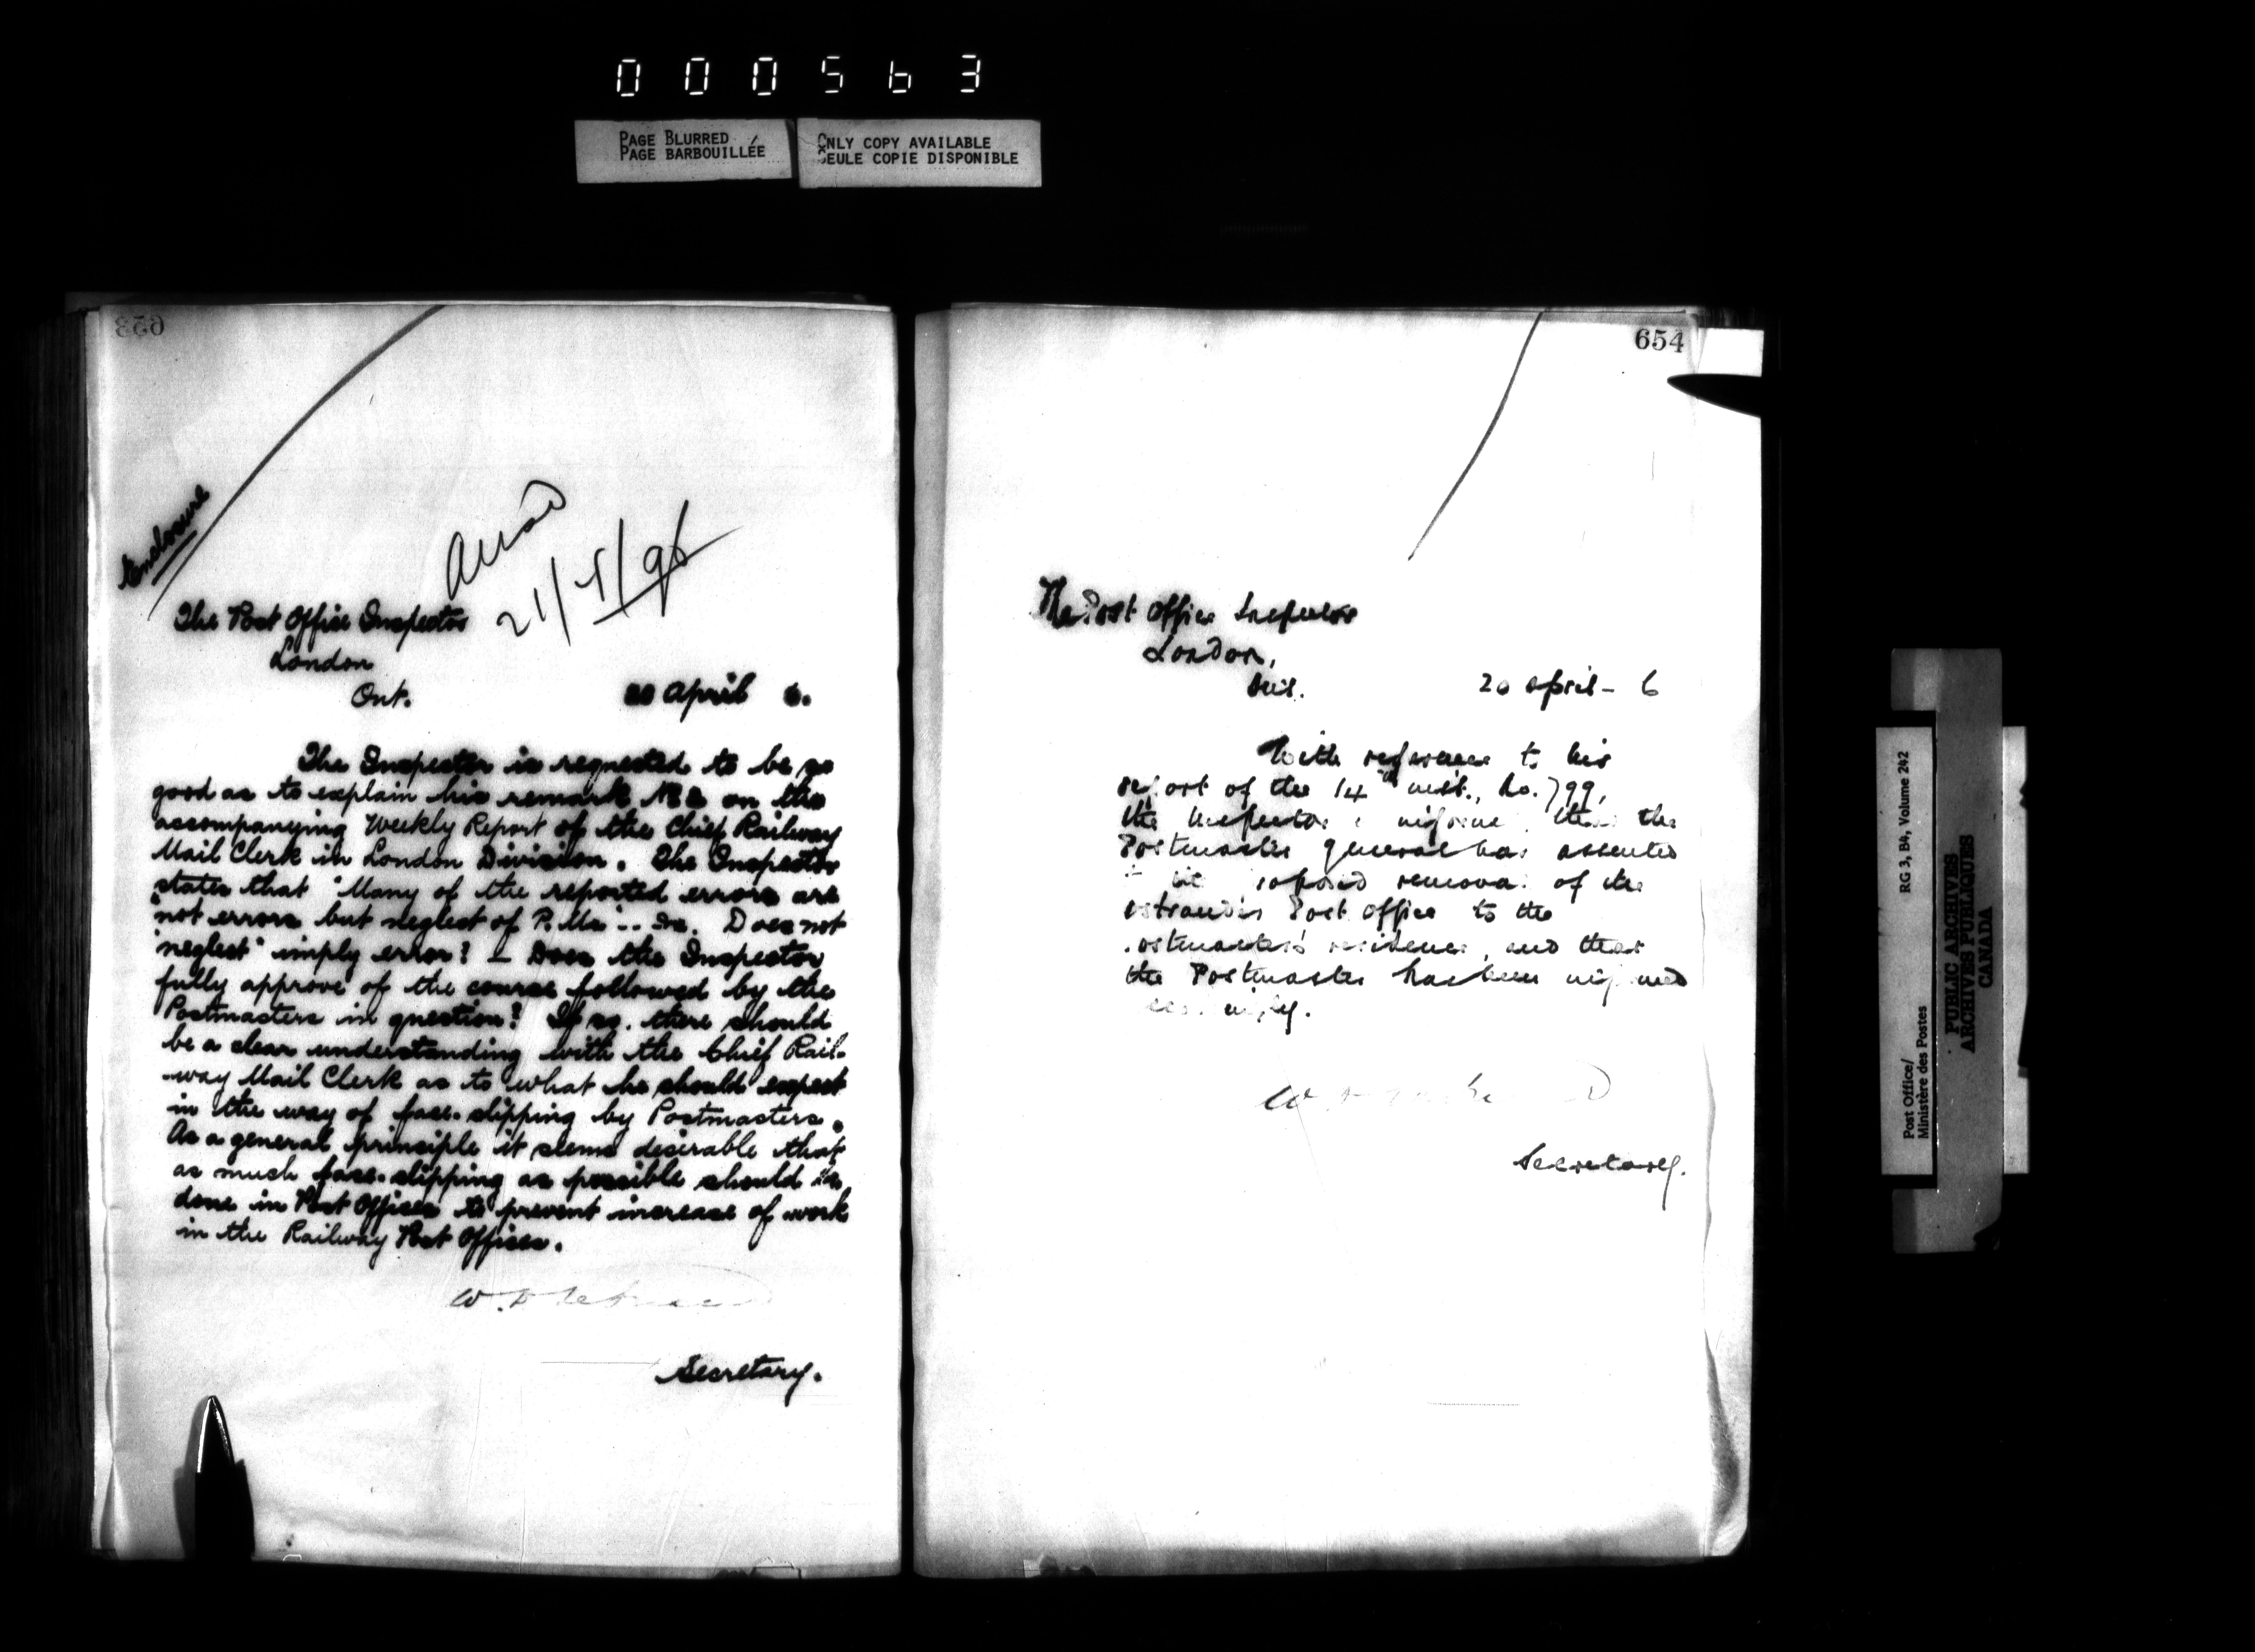 000563
PAGE BLURRED
PAGE BARBOUILLÉE
ONLY COPY AVAILABLE
SEULE COPIE DISPONIBLE
653
Enclosure
21/4/96
The Post Office Inspector
London
Ont.
20 April 6.
The Inspector is requested to be so
good as to explain his remark on the
accompanying Weekly Report of the Chief Railway
Mail Clerk in London Division. The Inspector
states that "Many of the reported errors are
"not errors but neglect of P. Ms". Does not
"neglect" imply error? — Does the Inspector
fully approve of the course followed by the
Postmasters in question? If so, there should
be a clear understanding with the Chief Rail-
-way Mail Clerk as to what he should expect
in the way of face-slipping by Postmasters.
As a general principle it seems desirable that
as much face-slipping as possible should be
done in Post Offices to prevent increase of work
in the Railway Post Offices.
Secretary.
654
The Post Office Inspector
London,
Ont.
20 April - 6
With reference to his
report of the 14th inst., No. 799,
the Inspector is informed that the
Postmaster General has assented
to the proposed removal of the
Ostrander Post Office to the
Postmaster's residence, and that
the Postmaster has been informed
accordingly.
Secretary.
RG 3, B4, Volume 242
Post Office/
Ministère des Postes
PUBLIC ARCHIVES
ARCHIVES PUBLIQUES
CANADA